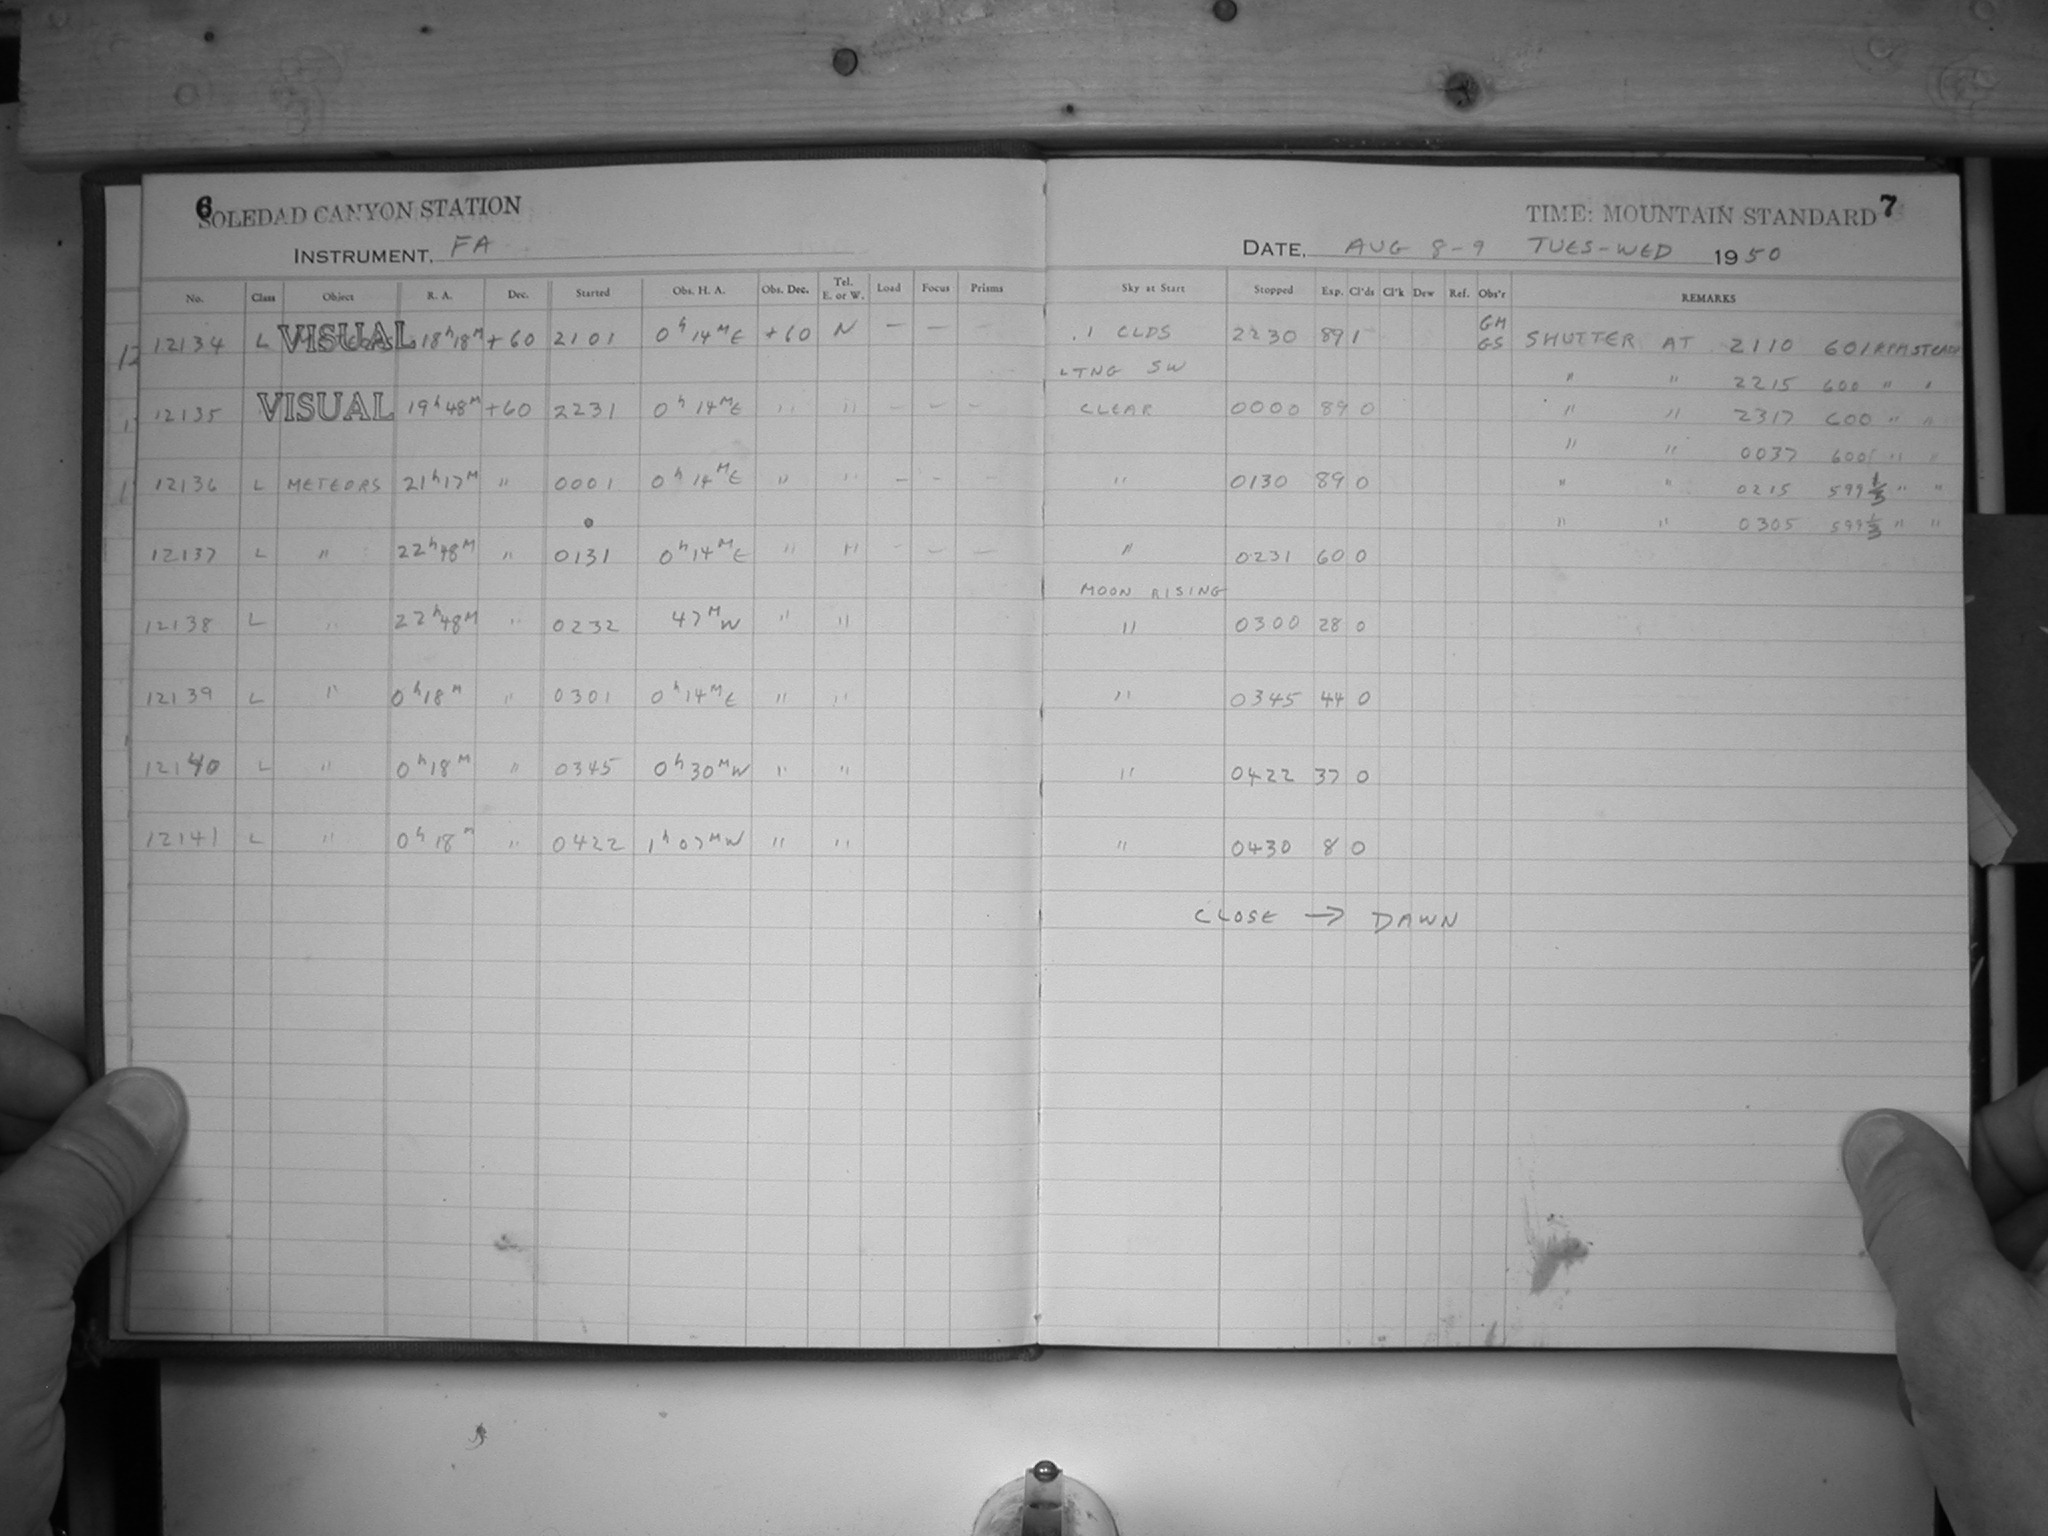 6 SOLEDAD CANYON STATION TIME: MOUNTAIN STANDARD 7
INSTRUMENT. FA DATE. AUG 8-9 TUES-WED 1950
No. Class Object R. A. Dec. Started Obs. H. A. Obs. Dec. Tel. E. or W. Load Focus Prisms Sky at Start Stopped Exp. Cl'ds Cl'k Dew Ref. Obs'r REMARKS
12134 L VISUAL 18h18M +60 2101 0h14ME +60 N — — — .1 CLDS 2230 89 1 GM GS SHUTTER AT 2110 601 RPM STEADY
LTNG SW " " 2215 600 " "
12135 VISUAL 19h48M +60 2231 0h14ME " " — — — CLEAR 0000 89 0 " " 2317 600 " "
" " 0037 600 " "
12136 L METEORS 21h17M " 0001 0h14ME " " — — " 0130 89 0 " " 0215 599 1/3 " "
" " 0305 599 1/3 " "
12137 L " 22h48M " 0131 0h14ME " " - — — " 0231 60 0
MOON RISING
12138 L " 22h48M " 0232 47MW " " " 0300 28 0
12139 L " 0h18M " 0301 0h14ME " " " 0345 44 0
12140 L " 0h18M " 0345 0h30MW " " " 0422 37 0
12141 L " 0h18M " 0422 1h07MW " " " 0430 8 0
CLOSE → DAWN